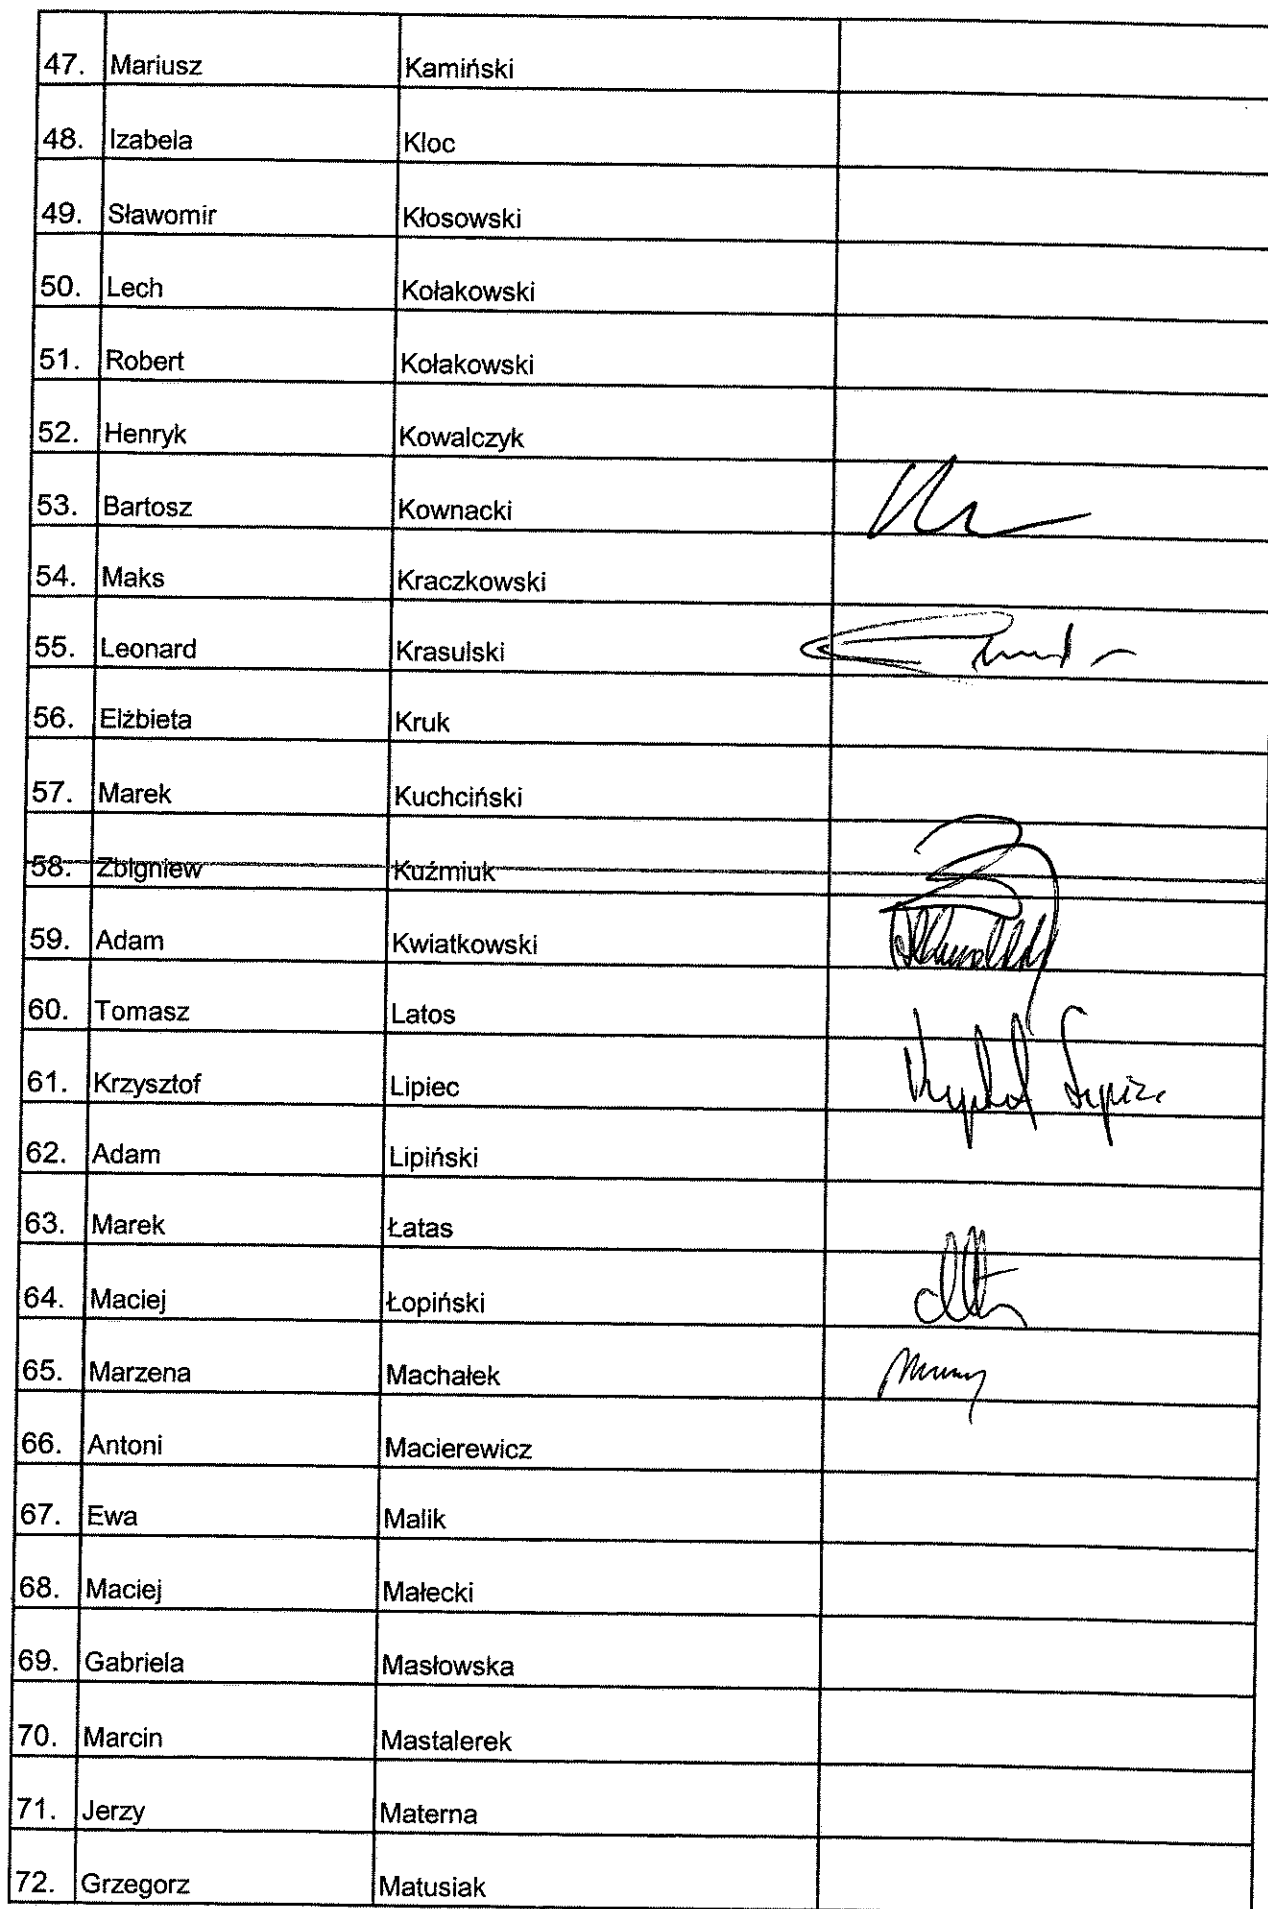 47. Mariusz Kamiński
48. Izabela Kloc
49. Sławomir Kłosowski
50. Lech Kołakowski
51. Robert Kołakowski
52. Henryk Kowalczyk
53. Bartosz Kownacki
54. Maks Kraczkowski
55. Leonard Krasulski
56. Elżbieta Kruk
57. Marek Kuchciński
58. Zbigniew Kuźmiuk
59. Adam Kwiatkowski
60. Tomasz Latos
61. Krzysztof Lipiec
62. Adam Lipiński
63. Marek Łatas
64. Maciej Łopiński
65. Marzena Machałek
66. Antoni Macierewicz
67. Ewa Malik
68. Maciej Małecki
69. Gabriela Masłowska
70. Marcin Mastalerek
71. Jerzy Materna
72. Grzegorz Matusiak